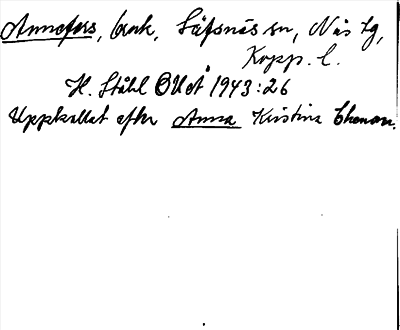 Annefors, bruk, Säfsnäs sn, Näs tg,
Kopp. l.
H. Ståhl OUÅ 1943:26
Uppkallat efter Anna Kristina